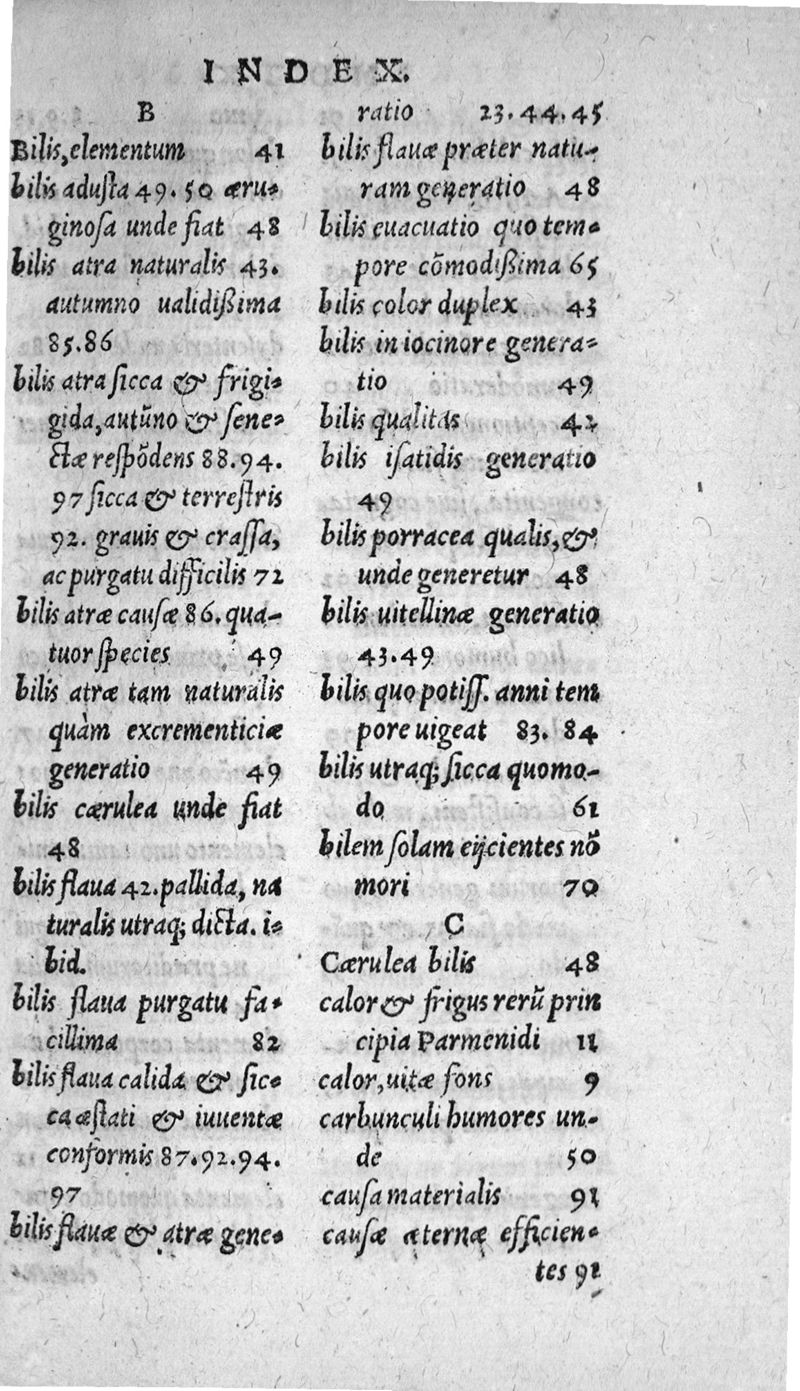 INDEX.
B
Bilis, elementum 41
bilis adusta 49. 50 æru-
ginosa unde fiat 48
bilis atra naturalis 43.
autumno ualidißima
85.86
bilis atra sicca & frigi-
gida, autũno & sene-
ctæ respõdens 88.94.
97 sicca & terrestris
92. grauis & crassa,
ac purgatu difficilis 72
bilis atræ causæ 86. qua-
tuor species 49
bilis atræ tam naturalis
quàm excrementiciæ
generatio 49
bilis cærulea unde fiat
48
bilis flaua 42. pallida, na
turalis utraq; dicta. i-
bid.
bilis flaua purgatu fa-
cillima 82
bilis flaua calida & sic-
ca æstati & iuuentæ
conformis 87.92.94.
97
bilis flauæ & atræ gene-
ratio 23.44.45
bilis flauæ præter natu-
ram generatio 48
bilis euacuatio quo tem-
pore cõmodißima 65
bilis color duplex 43
bilis in iocinore genera-
tio 49
bilis qualitas 42
bilis isatidis generatio
49
bilis porracea qualis, &
unde generetur 48
bilis uitellinæ generatio
43.49
bilis quo potiss. anni tem
pore uigeat 83. 84
bilis utraq; sicca quomo-
do 61
bilem solam eijcientes nõ
mori 70
C
Cærulea bilis 48
calor & frigus rerũ prin
cipia Parmenidi 11
calor, uitæ fons 9
carbunculi humores un-
de 50
causa materialis 91
causæ æternæ efficien-
tes 91